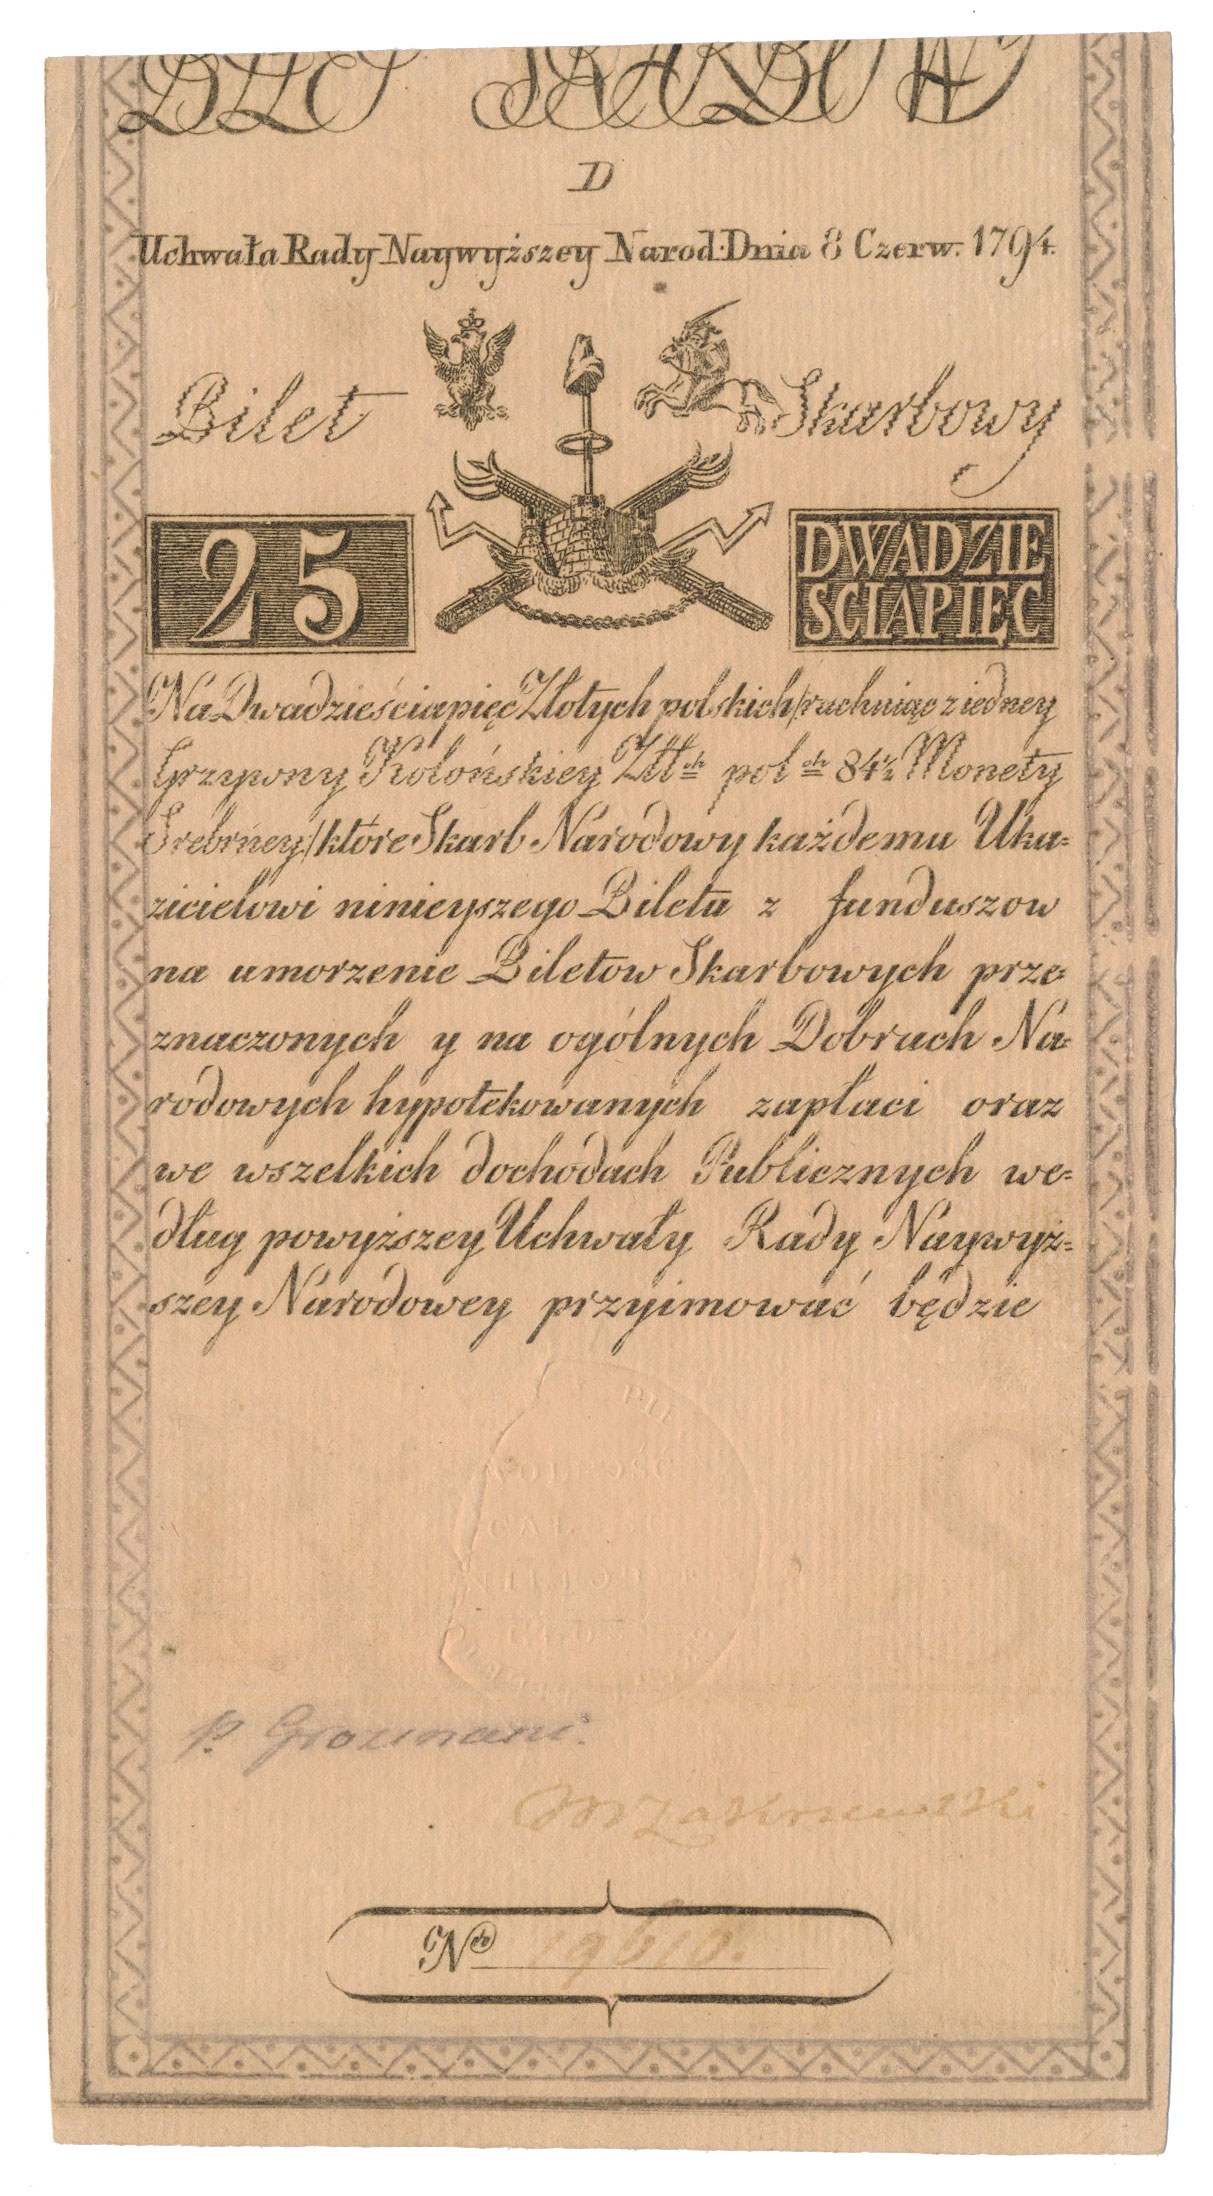 BILET SKARBOWY
D
Uchwała Rady Naywyższey Narod: Dnia 8 Czerw. 1794.
Bilet Skarbowy
25
DWADZIE
SCIAPIĘC
Na Dwadzieściapięć Złotych polskich /rachuiąc z iedney
Grzywny Kolońskiey Złł.ch pol.ch 84½ Monety
Srebrńey/ które Skarb Narodowy każdemu Uka=
zicielowi ninieyszego Biletu z funduszow
na umorzenie Biletow Skarbowych prze=
znaczonych y na ogólnych Dobrach Na=
rodowych hypotekowanych zapłaci oraz
we wszelkich dochodach Publicznych we=
dług powyższey Uchwały Rady Naywyż=
szey Narodowey przyimować będzie
WOLNOŚĆ
CAŁOŚĆ
p. Grozmani.
M Zakrzewski
No 19610.